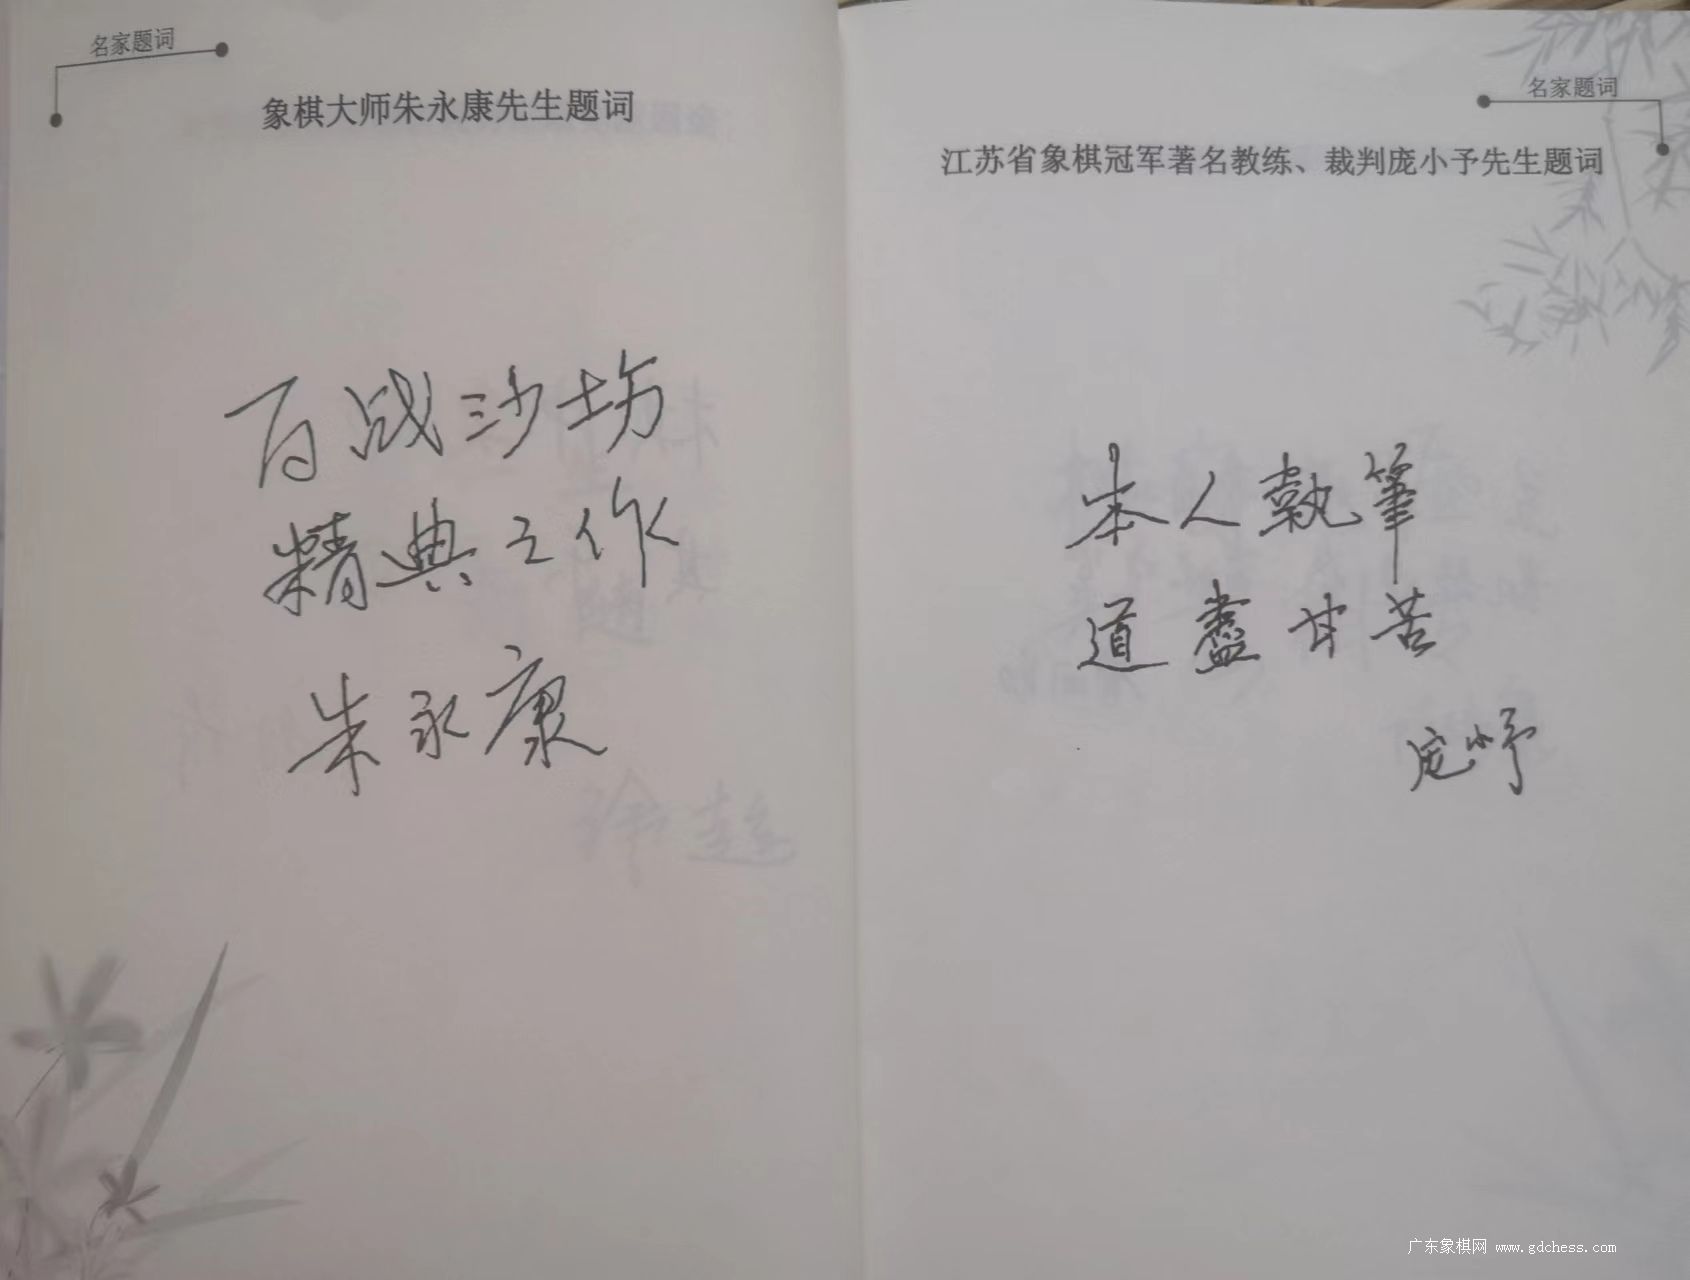 名家题词
象棋大师朱永康先生题词
百战沙场
精典之作
朱永康
名家题词
江苏省象棋冠军著名教练、裁判庞小予先生题词
本人執筆
道盡甘苦
庞小予
广东象棋网 www.gdchess.com